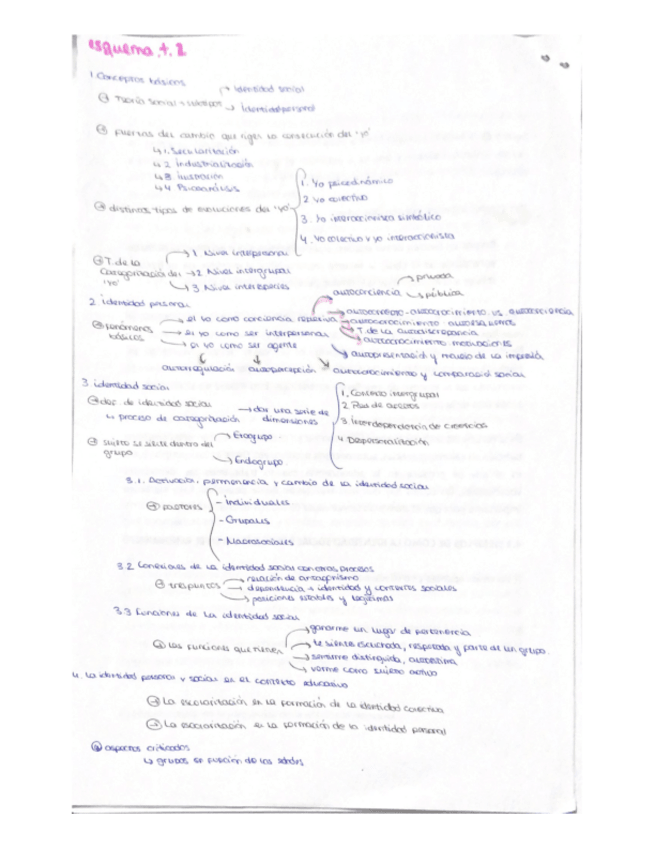 esquema t. 2
1. Conceptos básicos
Teoría social → identidad social
→ identidad personal
fuerzas del cambio que rigen la consecución del "yo"
↳ 1. Secularización
↳ 2 industrialización
↳ 3 ilustración
↳ 4 Psicoanálisis
distintos tipos de evoluciones del "yo"
1. Yo psicodinámico
2 yo colectivo
3. Yo interaccionista simbólico
4. Yo colectivo y yo interaccionista
T. de la Categorización del "yo"
→ 1 Nivel interpersonal
→ 2 Nivel intergrupal
→ 3 Nivel interespecies
2 identidad personal
fenómenos básicos
→ el yo como conciencia reflexiva
→ el yo como ser interpersonal
→ el yo como ser agente
autoconciencia → privada
→ pública
→ autoconcepto - autoconocimiento vs autoconciencia
→ autoconocimiento autoesquemas
→ T. de la autodiscrepancia
→ autoconocimiento motivaciones
→ autopresentación y manejo de la impresión
autorregulación autopercepción autoconocimiento y comparación social
3 identidad social
def. de identidad social
↳ proceso de categorización → dar una serie de dimensiones
1. Contexto intergrupal
2
3 interdependencia de creencias
4 Despersonalización
sujeto se sitúa dentro del grupo
→ Exogrupo
→ Endogrupo
3.1. Activación, permanencia y cambio de la identidad social
factores
- Individuales
- Grupales
- Macrosociales
3.2 Conexiones de la identidad social con otros procesos
tres puntos
→ relación de antagonismo
→ dependencia + identidad y contextos sociales
→ posiciones estables y legítimas
3.3 Funciones de la identidad social
Las funciones que tienen
→ ganarme un lugar de pertenencia
→ te siente escuchada, respetada y parte de un grupo.
→ sentirme distinguida, autoestima
→ verme como sujeto activo
4. La identidad personal y social en el contexto educativo
→ La escolarización en la formación de la identidad colectiva
→ La escolarización en la formación de la identidad personal
aspectos criticados
↳ grupos en función de las edades